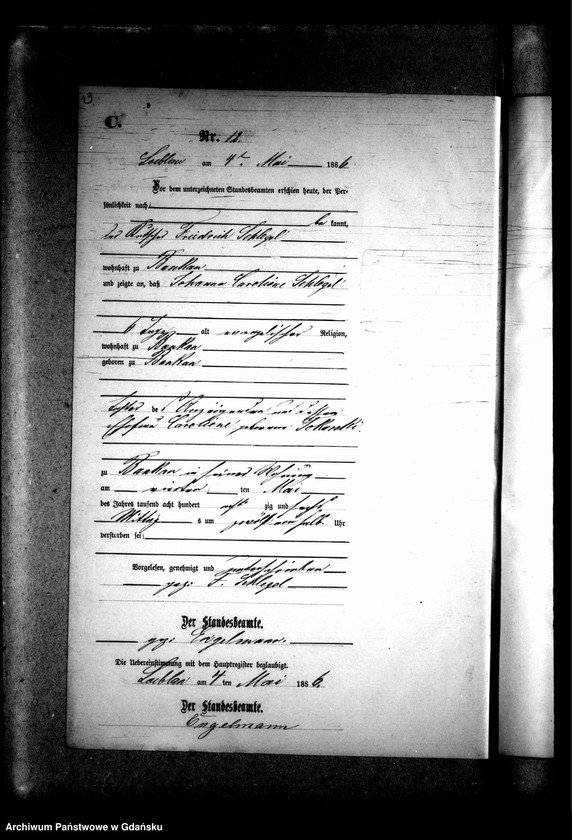 13
C.
Nr. 12.
Loeblau am 4ten Mai 1886.
Vor dem unterzeichneten Standesbeamten erschien heute, der Per-
sönlichkeit nach
be kannt,
der Friedrich Schlegel
wohnhaft zu Bankau
und zeigte an, daß Johanna Caroline Schlegel
6 Tage alt evangelischer Religion,
wohnhaft zu Bankau
geboren zu Bankau
Tochter des Anzeigenden und dessen
Ehefrau Caroline geborene
zu Bankau in seiner Wohnung
am vierten ten Mai
des Jahres tausend acht hundert acht zig und sechs
Mittag s um zwölf ein halb Uhr
verstorben sei
Vorgelesen, genehmigt und unterschrieben
gez. F. Schlegel
Der Standesbeamte.
gez. Engelmann.
Die Uebereinstimmung mit dem Hauptregister beglaubigt.
Loeblau am 4 ten Mai 1886.
Der Standesbeamte.
Engelmann
Archiwum Państwowe w Gdańsku